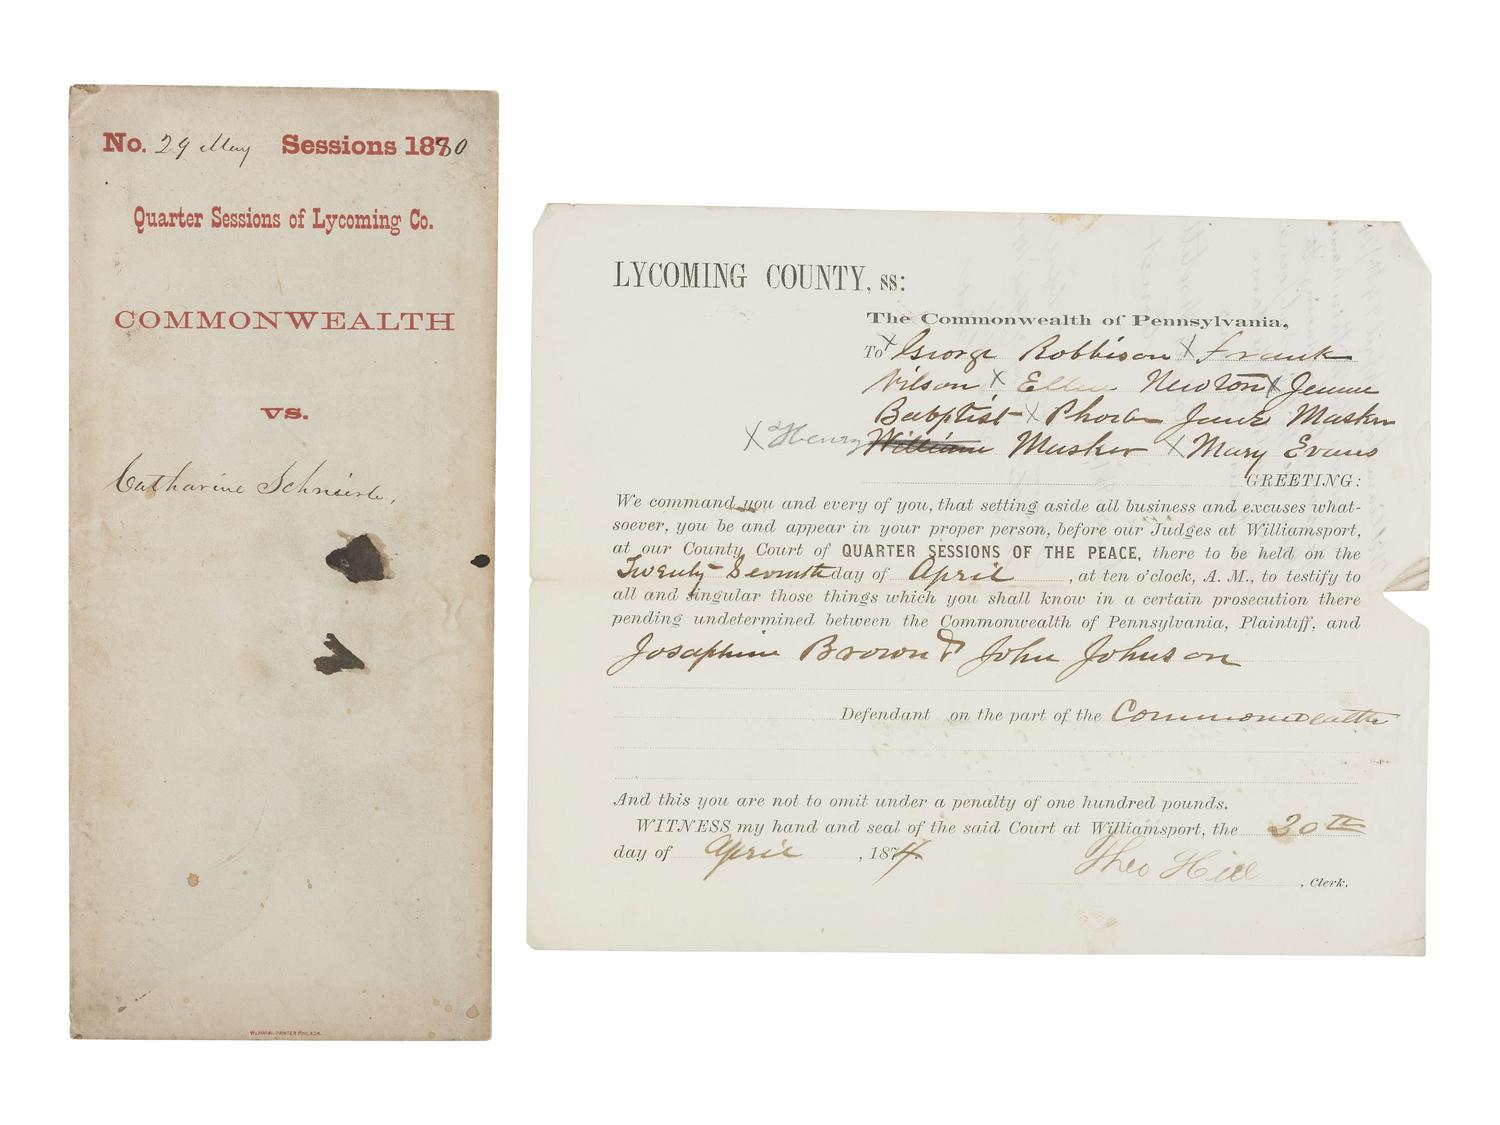 No. 29 May Sessions 1880
Quarter Sessions of Lycoming Co.
COMMONWEALTH
vs.
Catharine Schnierle,
LYCOMING COUNTY, ss:
The Commonwealth of Pennsylvania,
To X George Robbison X Frank
Wilson X Ellen Newton X Jennie
Babptist X Phoeb Jane Masker
X Henry William Masker X Mary Evans
GREETING:
We command you and every of you, that setting aside all business and excuses what-
soever, you be and appear in your proper person, before our Judges at Williamsport,
at our County Court of QUARTER SESSIONS OF THE PEACE, there to be held on the
Twenty Seventh day of April, at ten o'clock, A. M., to testify to
all and singular those things which you shall know in a certain prosecution there
pending undetermined between the Commonwealth of Pennsylvania, Plaintiff, and
Josaphine Brown & John Johnson
Defendant on the part of the Commonwealth
And this you are not to omit under a penalty of one hundred pounds.
WITNESS my hand and seal of the said Court at Williamsport, the 20th
day of April, 1874
Theo Hill, Clerk.